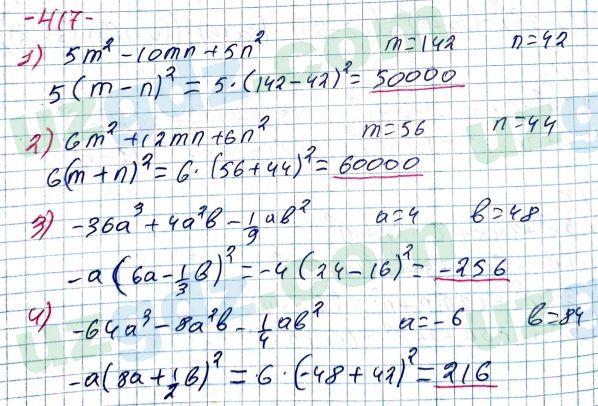 -417-
1) 5m² - 10mn + 5n² m = 142 n = 42
5(m - n)² = 5·(142 - 42)² = 50000
2) 6m² + 12mn + 6n² m = 56 n = 44
6(m + n)² = 6·(56 + 44)² = 60000
3) -36a³ + 4a²b - 1/9 ab² a = 4 b = 48
-a(6a - 1/3 b)² = -4(24 - 16)² = -256
4) -64a³ - 8a²b - 1/4 ab² a = -6 b = 84
-a(8a + 1/2 b)² = 6·(-48 + 42)² = 216